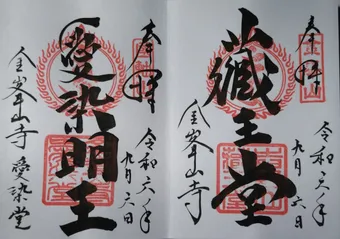 奉拝
蔵王堂
令和六年
九月六日
金峯山寺
奉拝
愛染明王
令和六年
九月六日
金峯山寺 愛染堂